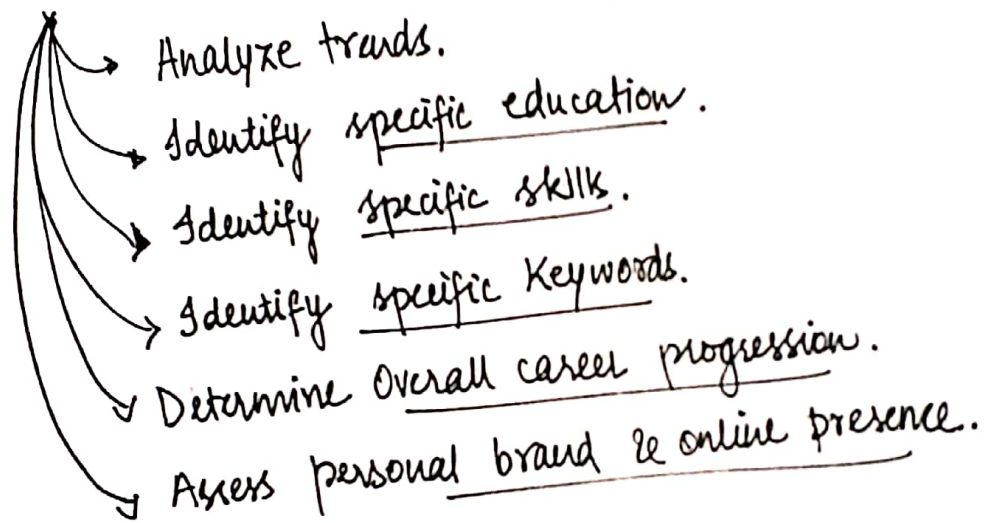 Analyze trends.
Identify specific education.
Identify specific skills.
Identify specific Keywords.
Determine Overall career progression.
Assess personal brand & online presence.